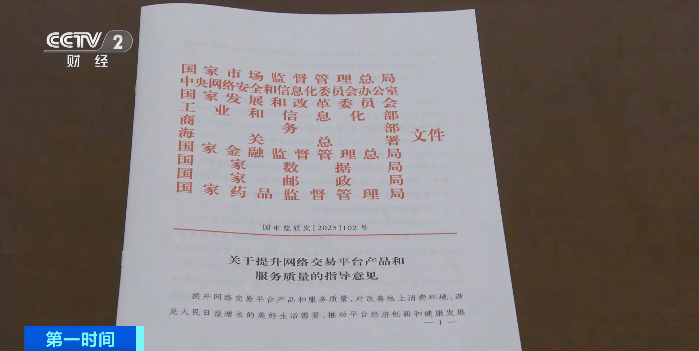 CCTV 2
财经
国家市场监督管理总局
中央网络安全和信息化委员会办公室
国家发展和改革委员会
工业和信息化部
商务部
海关总署
国家金融监督管理总局
国家数据局
国家邮政局
国家药品监督管理局
文件
国市监质发〔2025〕102号
关于提升网络交易平台产品和
服务质量的指导意见
提升网络交易平台产品和服务质量,对改善线上消费环境、满
足人民日益增长的美好生活需要、推动平台经济创新和健康发展
— 1 —
第一时间